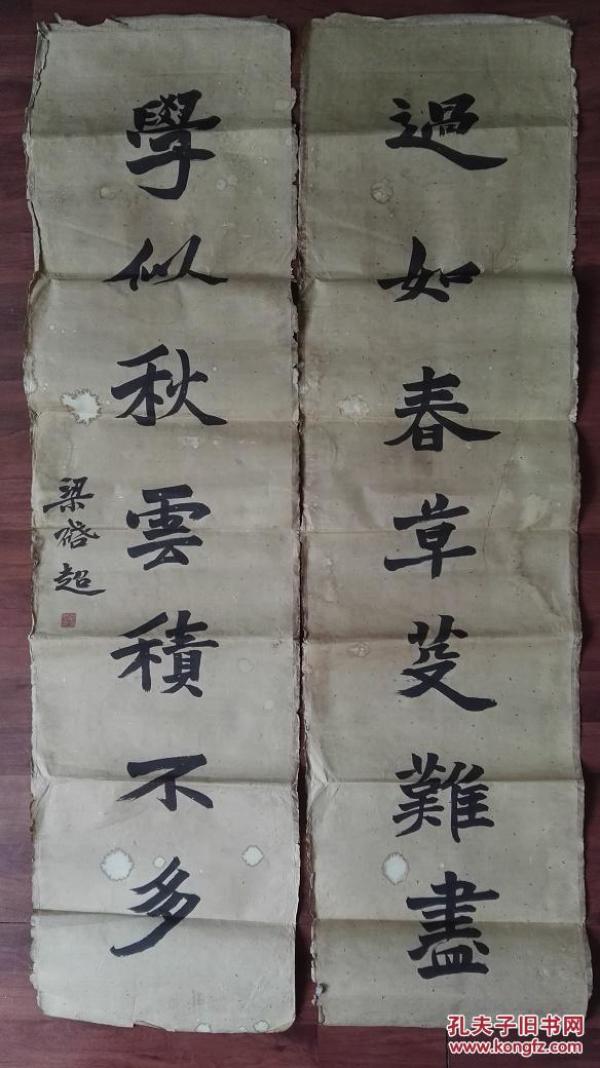 過如春草芟難盡
學似秋雲積不多
梁啓超
孔夫子旧书网
www.kongfz.com